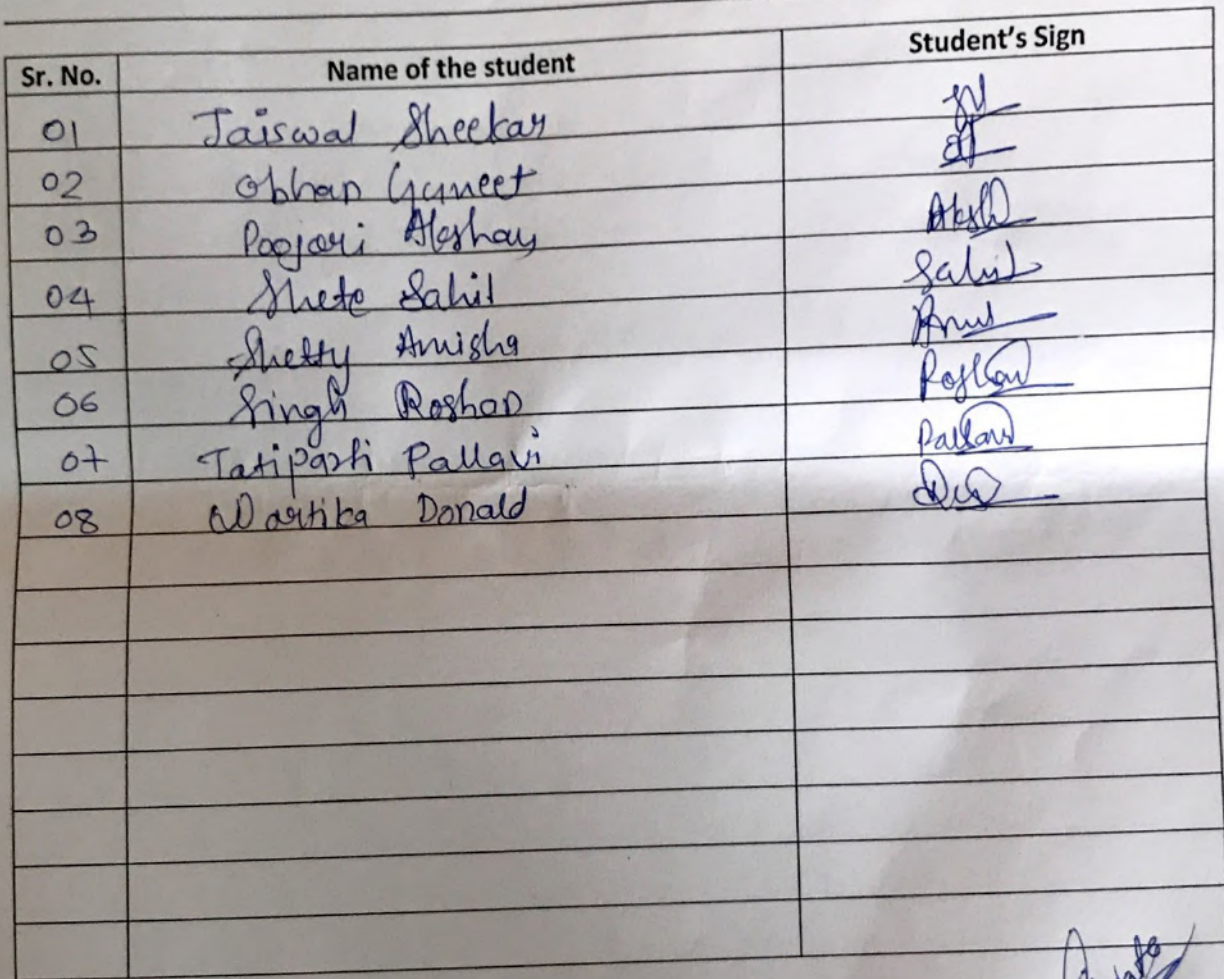 Sr. No. Name of the student Student's Sign
01 Jaiswal Sheekar
02 Obhan Guneet
03 Poojari Akshay Aksh
04 Shete Sahil Sahil
05 Shetty Amisha
06 Singh Roshan Roshan
07 Tatiparti Pallavi Pallavi
08 Wartika Donald